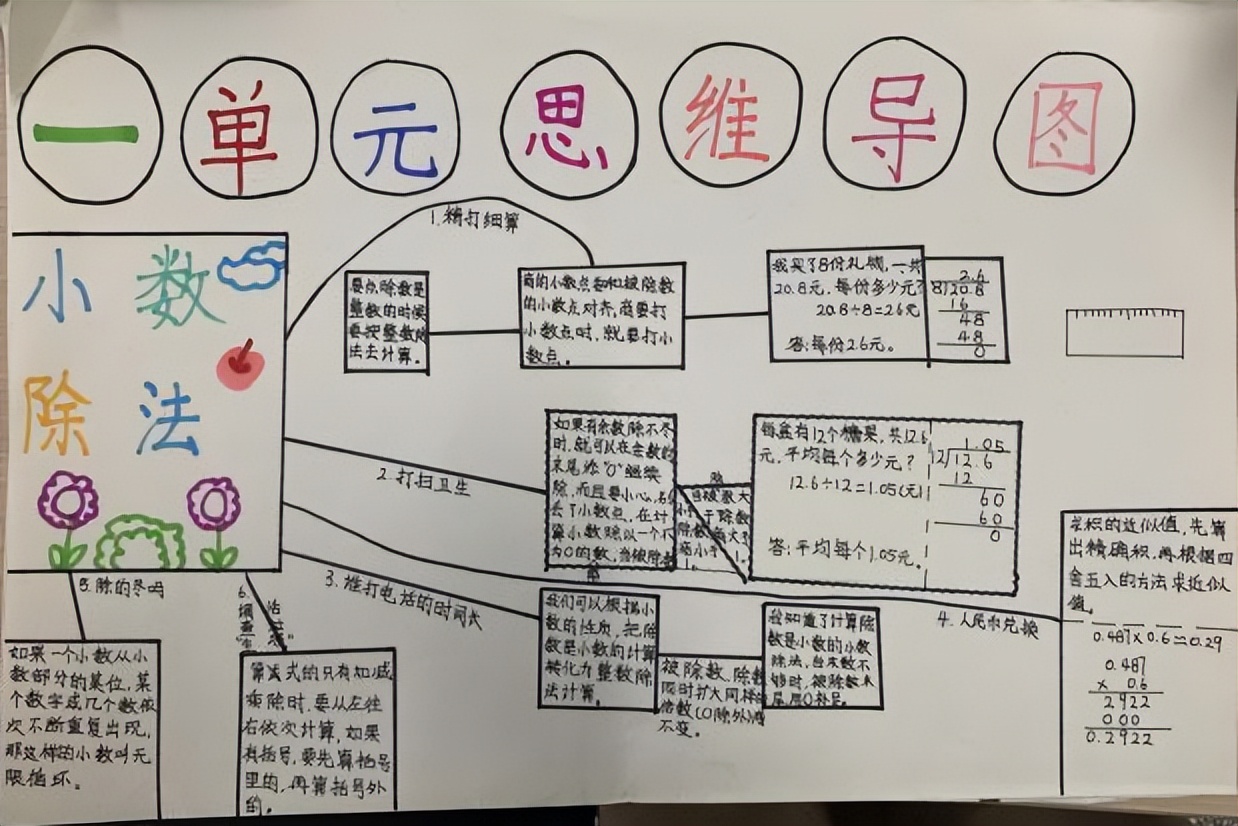 一单元思维导图
小数
除法
1.精打细算
要点除数是
整数的时候
要按整数除
法去计算。
商的小数点要和被除数
的小数点对齐,商要打
小数点时,就要打小
数点。
我买了8份礼物,一共
20.8元,每份多少元?
20.8÷8=2.6元
答:每份2.6元。
2.6
8 20.8
16
48
48
0
2.打扫卫生
如果有余数除不尽
时,就可以在余数的
末尾添"0"继续
除,而且要小心,
去了小数点,在计
算小数除以一个不
为0的数,当被除
每盒有12个糖果,共12.6
元,平均每个多少元?
12.6÷12=1.05(元)
答:平均每个1.05元。
1.05
12 12.6
12
60
60
0
3.谁打电话的时间长
我们可以根据小
数的性质,把除
数是小数的计算
转化为整数除
法计算。
被除数、除数
同时扩大同样的
倍数(0除外)商
不变。
我知道了计算除
数是小数的小数
除法,当末数不
够时,被除数末
尾用0补足。
4.人民币兑换
求积的近似值,先算
出精确积,再根据四
舍五入的方法求近似
值。
0.487×0.6=0.29
0.487
× 0.6
2922
000
0.2922
5.除的尽吗
如果一个小数从小
数部分的某位,某
个数字或几个数依
次不断重复出现,
那这样的小数叫无
限循环。
6.调查
"生活垃圾"
算法式的只有加减
乘除时,要从左往
右依次计算,如果
有括号,要先算括号
里的,再算括号外
的。